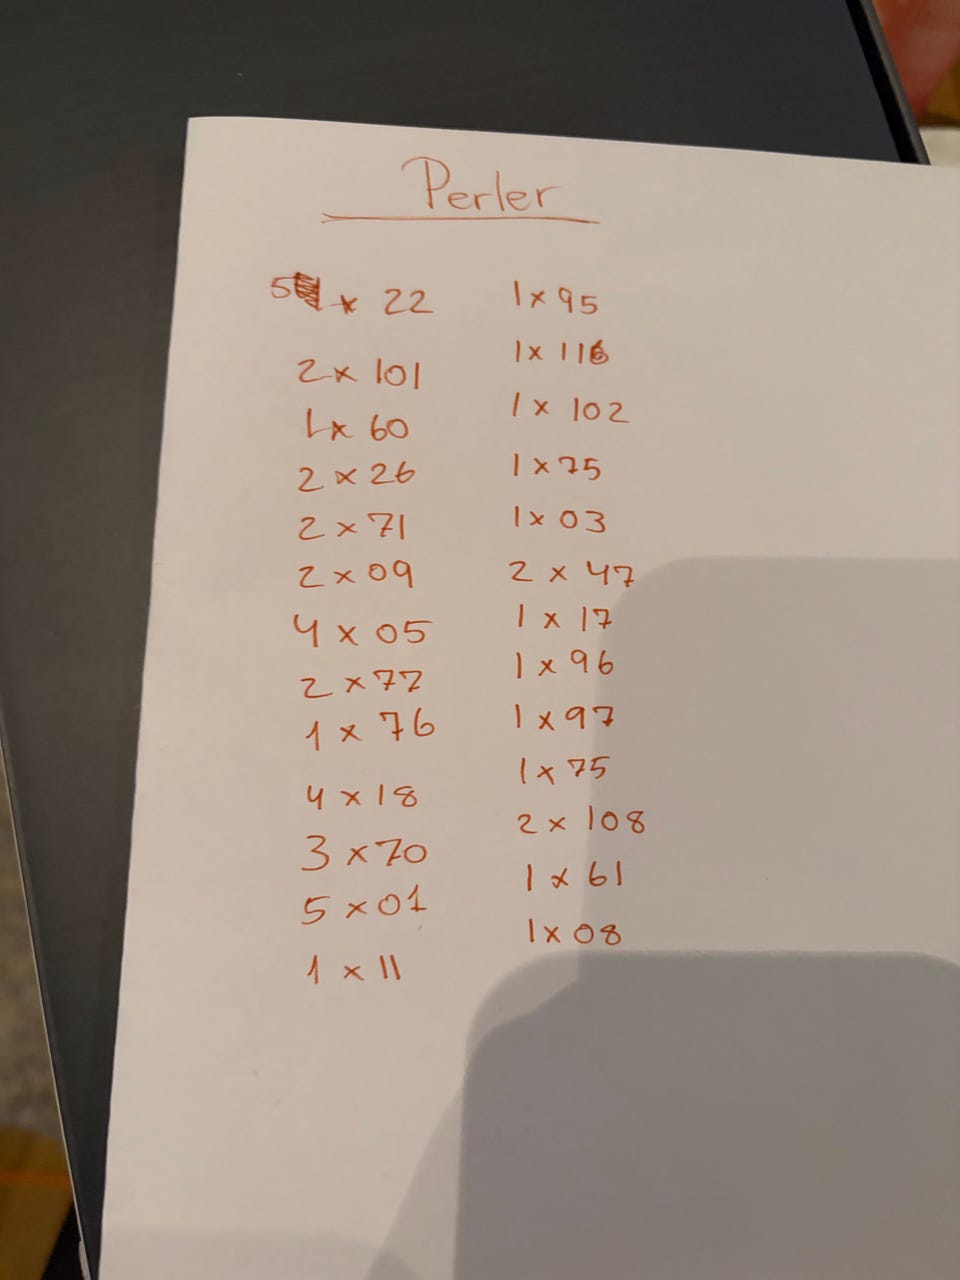 Perler
5 x 22
2 x 101
1 x 60
2 x 26
2 x 71
2 x 09
4 x 05
2 x 77
1 x 76
4 x 18
3 x 70
5 x 01
1 x 11
1 x 95
1 x 116
1 x 102
1 x 75
1 x 03
2 x 47
1 x 17
1 x 96
1 x 97
1 x 75
2 x 108
1 x 61
1 x 08